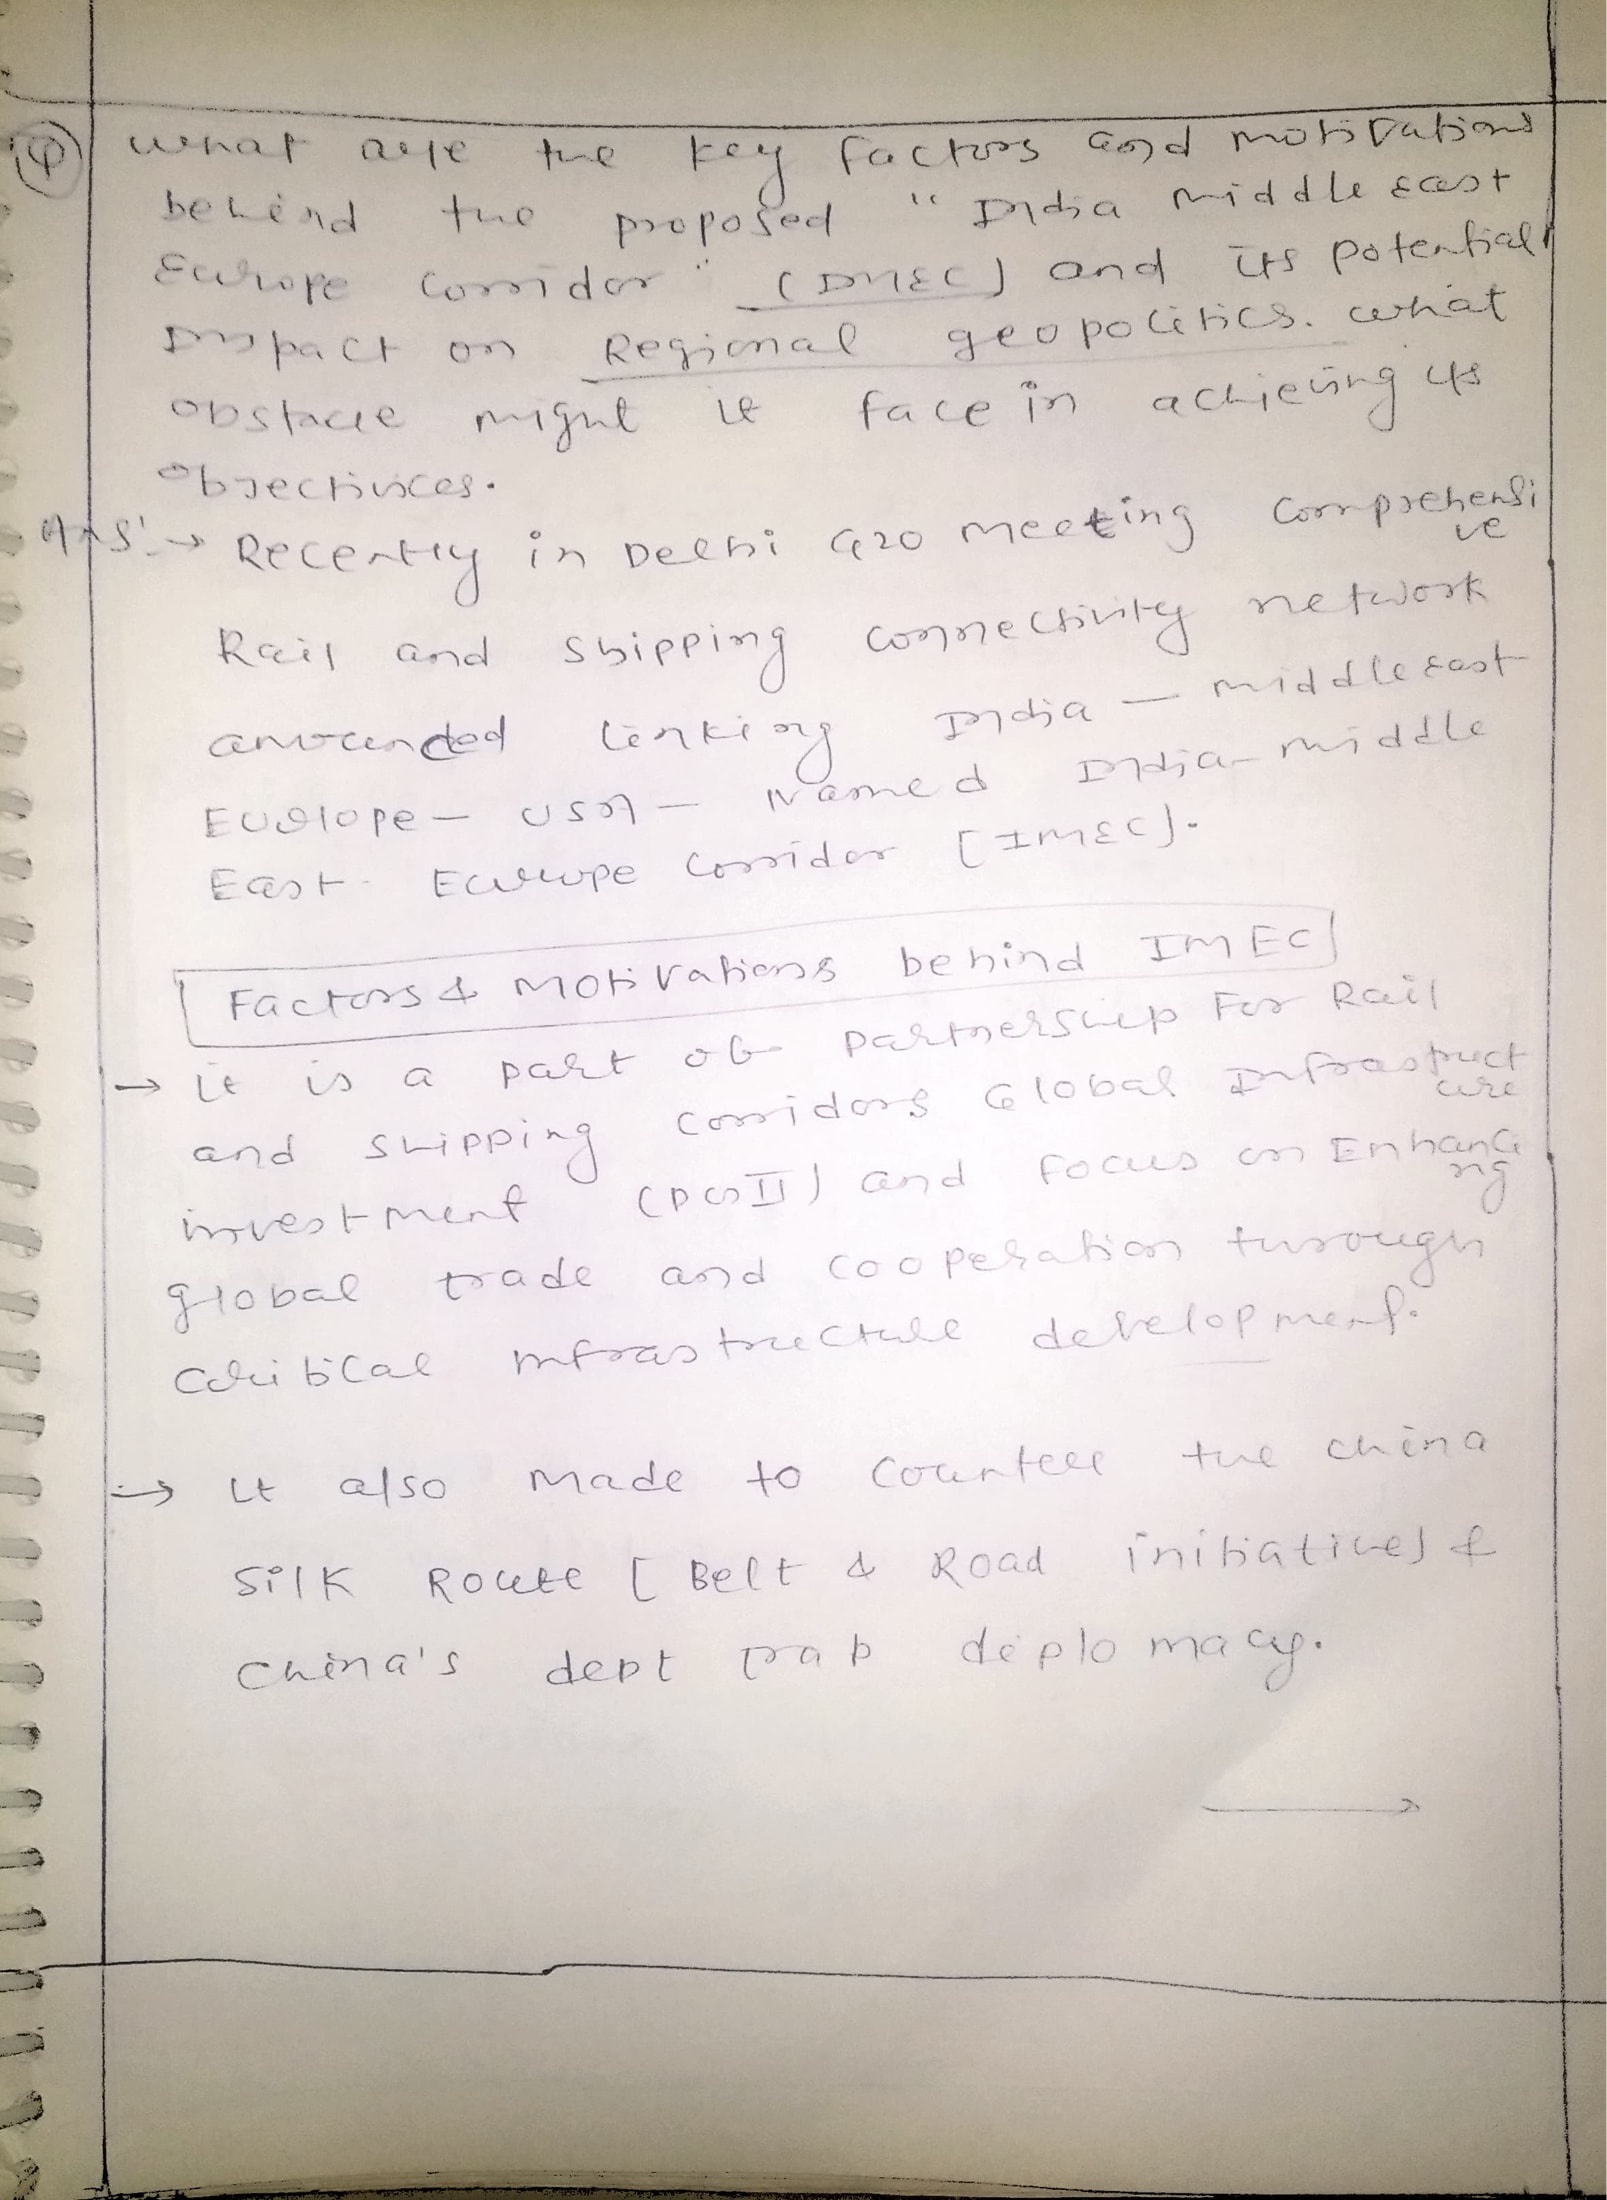 Q what are the key factors and motivations
behind the proposed "India middle east
Europe corridor" (IMEC) and its potential
Impact on Regional geopolitics. what
obstacle might it face in achieving its
objectivices.
Ans: → Recently in Delhi G20 meeting comprehensi
ve
Rail and shipping connectivity network
announced linking India - middle east
Europe - USA - Named India - middle
East - Europe corridor [IMEC].
Factors & Motivations behind IMEC
→ it is a part of partnership For Rail
and shipping corridors Global Infrastruct
ure
investment (PGII) and focus on Enhanci
ng
global trade and cooperation through
critical infrastructure development.
→ it also made to counter the china
silk Route [Belt & Road initiative] &
China's dept trap diplomacy.
→